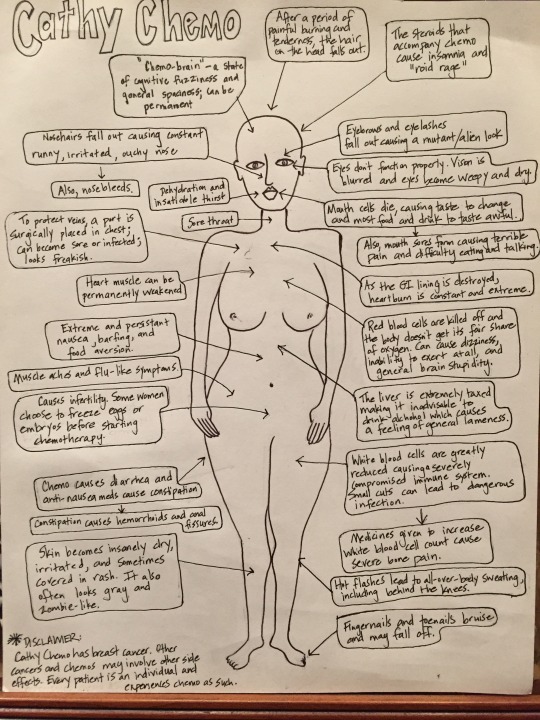 Cathy Chemo
After a period of
painful burning and
tenderness, the hair
on the head falls out.
The steroids that
accompany chemo
cause insomnia and
"roid rage"
"Chemo-brain" - a state
of cognitive fuzziness and
general spaciness; can be
permanent
Nosehairs fall out causing constant
runny, irritated, ouchy nose
Also, nosebleeds.
Eyebrows and eyelashes
fall out causing a mutant/alien look
Eyes don't function properly. Vison is
blurred and eyes become weepy and dry.
Dehydration and
insatiable thirst
Mouth cells die, causing taste to change
and most food and drink to taste awful.
Sore throat
Also, mouth sores form causing terrible
pain and difficulty eating and talking.
To protect veins, a port is
surgically placed in chest;
Can become sore or infected;
looks freakish.
Heart muscle can be
permanently weakened
As the GI lining is destroyed,
heartburn is constant and extreme.
Extreme and persistant
nausea, barfing, and
food aversion.
Red blood cells are killed off and
the body doesn't get its fair share
of oxygen. Can cause dizziness,
inability to exert at all, and
general brain stupidity.
Muscle aches and flu-like symptoms.
Causes infertility. Some women
choose to freeze eggs or
embryos before starting
chemotherapy.
The liver is extremely taxed
making it inadvisable to
drink alcohol which causes
a feeling of general lameness.
Chemo causes diarrhea and
anti-nausea meds cause constipation
Constipation causes hemorrhoids and anal
fissures.
White blood cells are greatly
reduced causing a severely
compromised immune system.
Small cuts can lead to dangerous
infection.
Medicines given to increase
white blood cell count cause
severe bone pain.
Skin becomes insanely dry,
irritated, and sometimes
covered in rash. It also
often looks gray and
zombie-like.
Hot flashes lead to all-over-body sweating,
including behind the knees.
Fingernails and toenails bruise
and may fall off.
* DISCLAIMER:
Cathy Chemo has breast cancer. Other
cancers and chemos may involve other side
effects. Every patient is an individual and
experiences chemo as such.